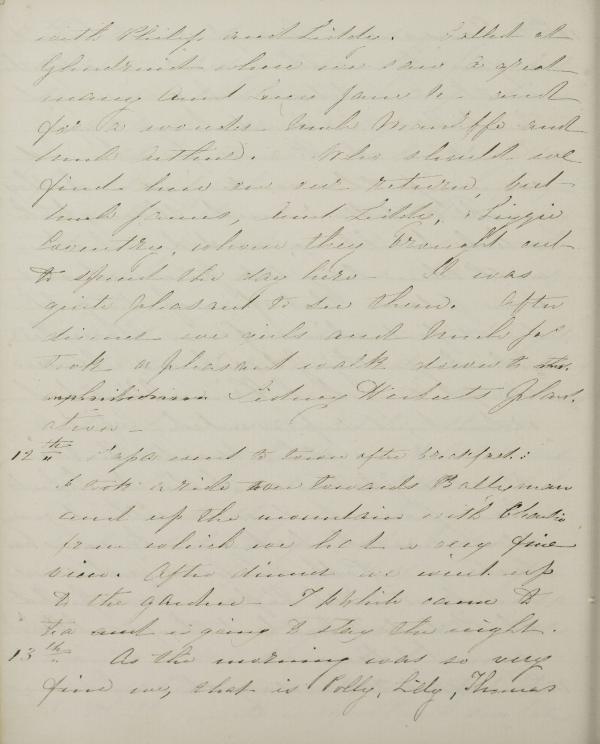 with Philip and Liddy. Called at
where we saw a great
many Aunt Jane &c and
for a wonder Uncle and
Uncle Arthur. Who should we
find here on our return, but
Uncle James, Aunt Liddy, & Lizzie
Coventry, whom they brought out
to spend the day here - It was
quite pleasant to see them. After
dinner we girls and Uncle Jas
took a pleasant walk down to
Sidney Herberts Plant-
ation -
12th Papa went to town after breakfast:
I took a ride towards Ballyman
and up the mountain with Charlie
from which we had a very fine
view. After dinner we went up
to the garden - came to
tea and is going to stay the night.
13th As the morning was so very
fine we, that is Polly, Lilly, Thomas